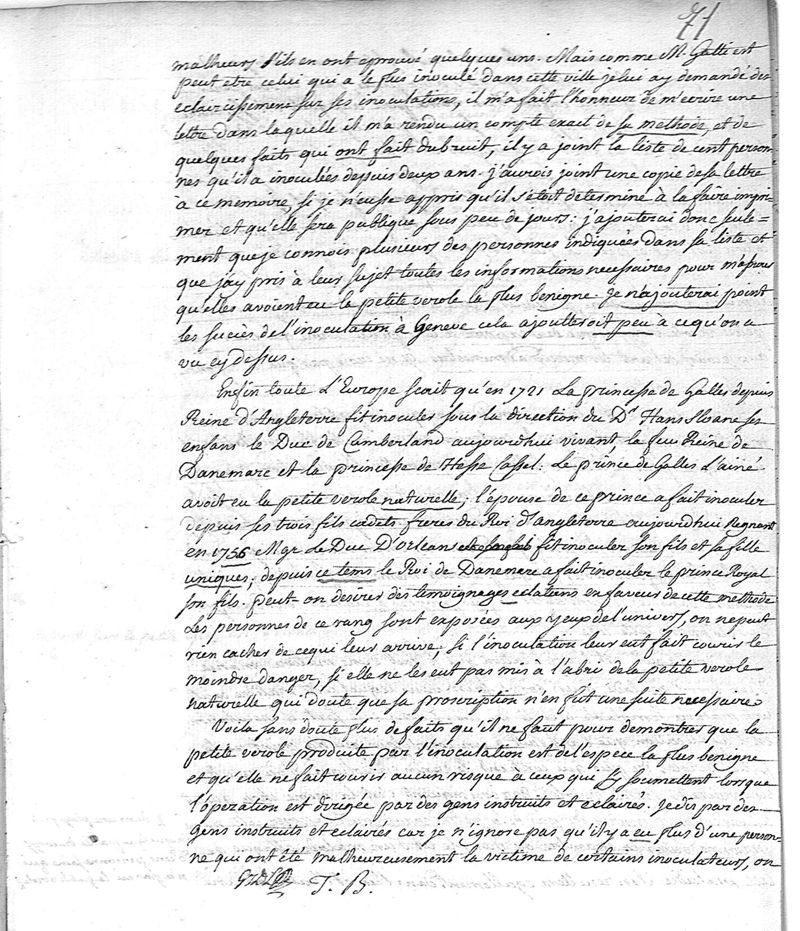 71
malheurs s'ils en ont eprouvé quelques uns. Mais comme M. Gatti est
peut etre celui qui a le plus inoculé dans cette ville je lui ay demandé des
eclaircissemens sur ses inoculations, il m'a fait l'honneur de m'ecrire une
lettre dans laquelle il m'a rendu un compte exact de sa methode, et de
quelques faits qui ont fait du bruit, il y a joint la liste de cent person-
nes qu'il a inoculées depuis deux ans. j'aurois joint une copie de sa lettre
à ce memoire, si je n'eusse appris qu'il s'étoit determiné à la faire impri-
mer et qu'elle sera publique sous peu de jours: j'ajouterai donc seule=
ment que je connois plusieurs des personnes indiquées dans sa liste et
que j'ay pris à leur sujet toutes les informations necessaires pour
qu'elles avoient eu la petite verole la plus benigne. Je n'ajouterai point
les succès de l'inoculation à Geneve cela ajoutteroit peu à ce qu'on a
vu cy dessus.
Enfin toute l'Europe scait qu'en 1721 La princesse de Galles depuis
Reine d'Angleterre fit inoculer sous la direction du Dr Hans Sloane ses
enfans le Duc de Cumberland aujourdhui vivant, la feu Reine de
Danemarc et la princesse de Hesse Cassel. Le prince de Galles l'ainé
avoit eu la petite verole naturelle; l'épouse de ce prince a fait inoculer
depuis ses trois fils cadets freres du Roi d'angleterre aujourdhui Regnant
en 1756 Mgr le Duc D'orleans fit inoculer son fils et sa fille
uniques; depuis ce tems le Roi de Danemarc a fait inoculer le prince Royal
son fils. peut-on désirer des temoignages eclatans en faveur de cette methode
Les personnes de ce rang sont exposées aux yeux de l'univers, on ne peut
rien cacher de ce qui leur arrive; si l'inoculation leur eut fait courir le
moindre danger, si elle ne les eut pas mis à l'abri de la petite verole
naturelle qui doute que sa proscription n'en fut une suite necessaire
Voila sans doute plus de faits qu'il ne faut pour demontrer que la
petite verole produite par l'inoculation est de l'espece la plus benigne
et qu'elle ne fait courir aucun risque à ceux qui s'y soumettent lorsque
l'operation est dirigée par des gens instruits et eclairés. Je dis par des
gens instruits et eclairés car je n'ignore pas qu'il y a eu plus d'une person-
ne qui ont été malheureusement la victime de certains inoculateurs, on
T. B.